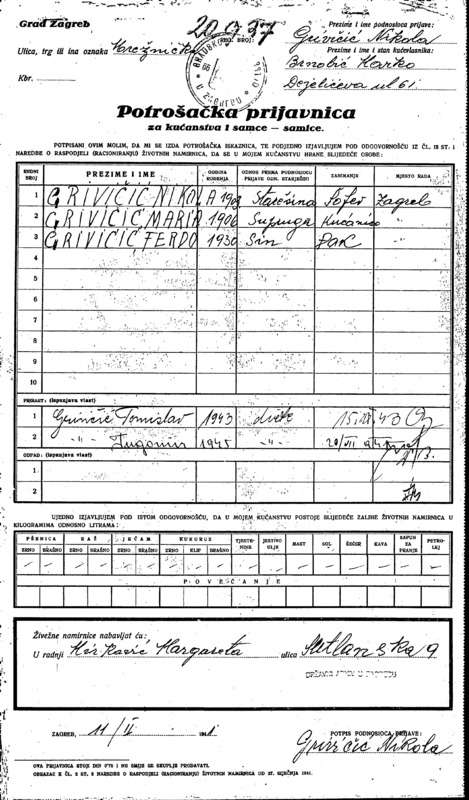 Grad Zagreb
Prezime i ime podnosioca prijave:
Grivičić Nikola
(REG. BROJ)
Ulica, trg ili ina oznaka
Prezime i ime i stan kućevlasnika:
Brnolić Marko
Kbr.
Dežélićeva ul 61.
Potrošačka prijavnica
za kućanstva i samce — samice.
POTPISANI OVIM MOLIM, DA MI SE IZDA POTROŠAČKA ISKAZNICA, TE PODJEDNO IZJAVLJUJEM POD ODGOVORNOŠĆU IZ ČL. 18 ST. 1
NAREDBE O RASPODJELI (RACIONIRANJU) ŽIVOTNIH NAMIRNICA, DA SE U MOJEM KUĆANSTVU HRANE SLIJEDEĆE OSOBE:
REDNI BROJ PREZIME I IME GODINA ROĐENJA ODNOS PREMA PODNOSIOCU PRIJAVE ODN. STARJEŠINI ZANIMANJE MJESTO RADA
1 GRIVIČIĆ NIKOLA Starešina Šofer Zagreb
2 GRIVIČIĆ MARIA 1906 Supruga Kućanica
3 GRIVIČIĆ FERDO 1930 Sin Đak
4
5
6
7
8
9
10
PRIRAST: (ispunjava vlast)
1 Grivičić Tomislav 1943 dijete 15. 43
2 -"- Tugomir 1945 -"- 20/VII 1945
OTPAD: (ispunjava vlast)
1
2
UJEDNO IZJAVLJUJEM POD ISTOM ODGOVORNOŠĆU, DA U MOJEM KUĆANSTVU POSTOJE SLIJEDEĆE ZALIHE ŽIVOTNIH NAMIRNICA U
KILOGRAMIMA ODNOSNO LITRAMA:
PŠENICA RAŽ JEČAM KUKURUZ TJESTENINE JESTIVO ULJE MAST SOL ŠEĆER KAVA SAPUN ZA PRANJE PETROLEJ
ZRNO BRAŠNO ZRNO BRAŠNO ZRNO BRAŠNO ZRNO KLIP BRAŠNO
POVEĆANJE
Živežne namirnice nabavljat ću:
U radnji Margareta ulica Metlanska 9
DRŽAVNI ARHIV U ZAGREBU
ZAGREB, 11/II 1941.
POTPIS PODNOSIOCA PRIJAVE:
Grivičić Nikola
OVA PRIJAVNICA STOJI DIN 0'75 I NE SMIJE SE SKUPLJE PRODAVATI.
OBRAZAC K ČL. 2 ST. 2 NAREDBE O RASPODJELI (RACIONIRANJU) ŽIVOTNIH NAMIRNICA OD 27. SIJEČNJA 1941.